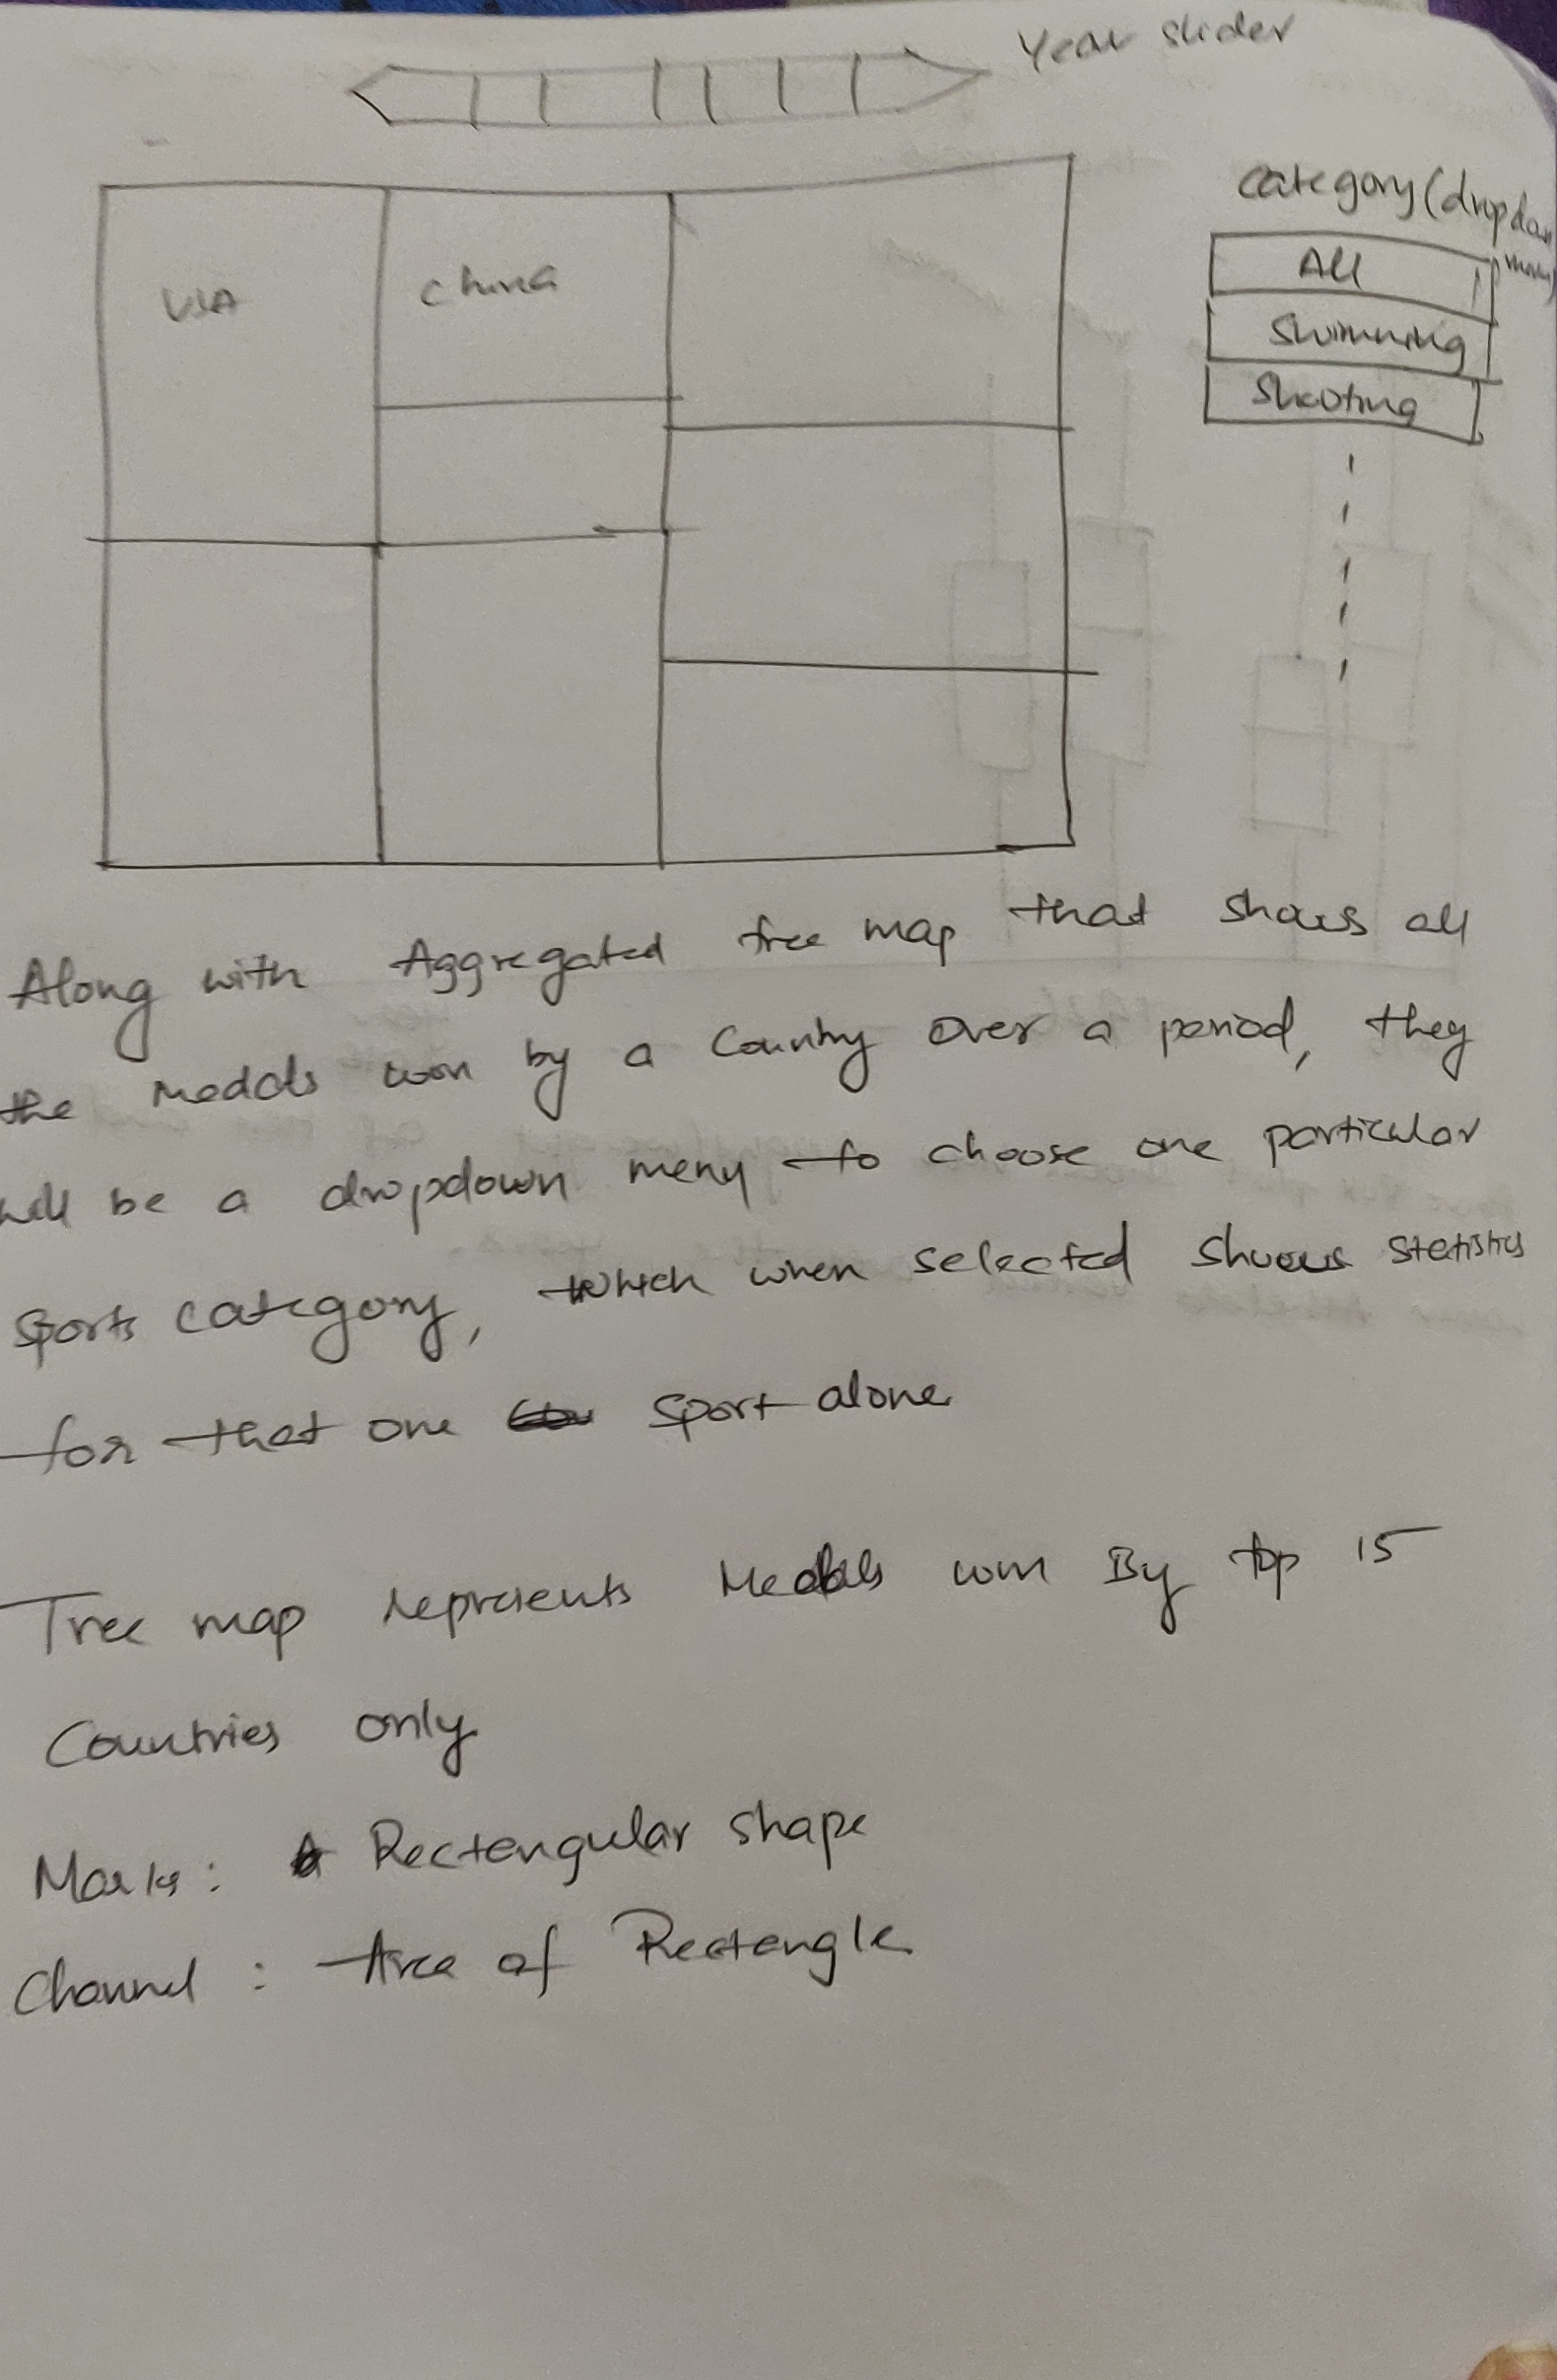 Year slider
category (dropdown menu)
All
USA
China
Swimming
Shooting
Along with Aggregated tree map that shows all
the medals won by a country over a period, they
will be a dropdown meny to choose one particular
sports category, which when selected shows statistics
for that one sport alone
Tree map represents Medals won By top 15
Countries only
Marks: Rectengular shape
Channel: Area of Rectengle